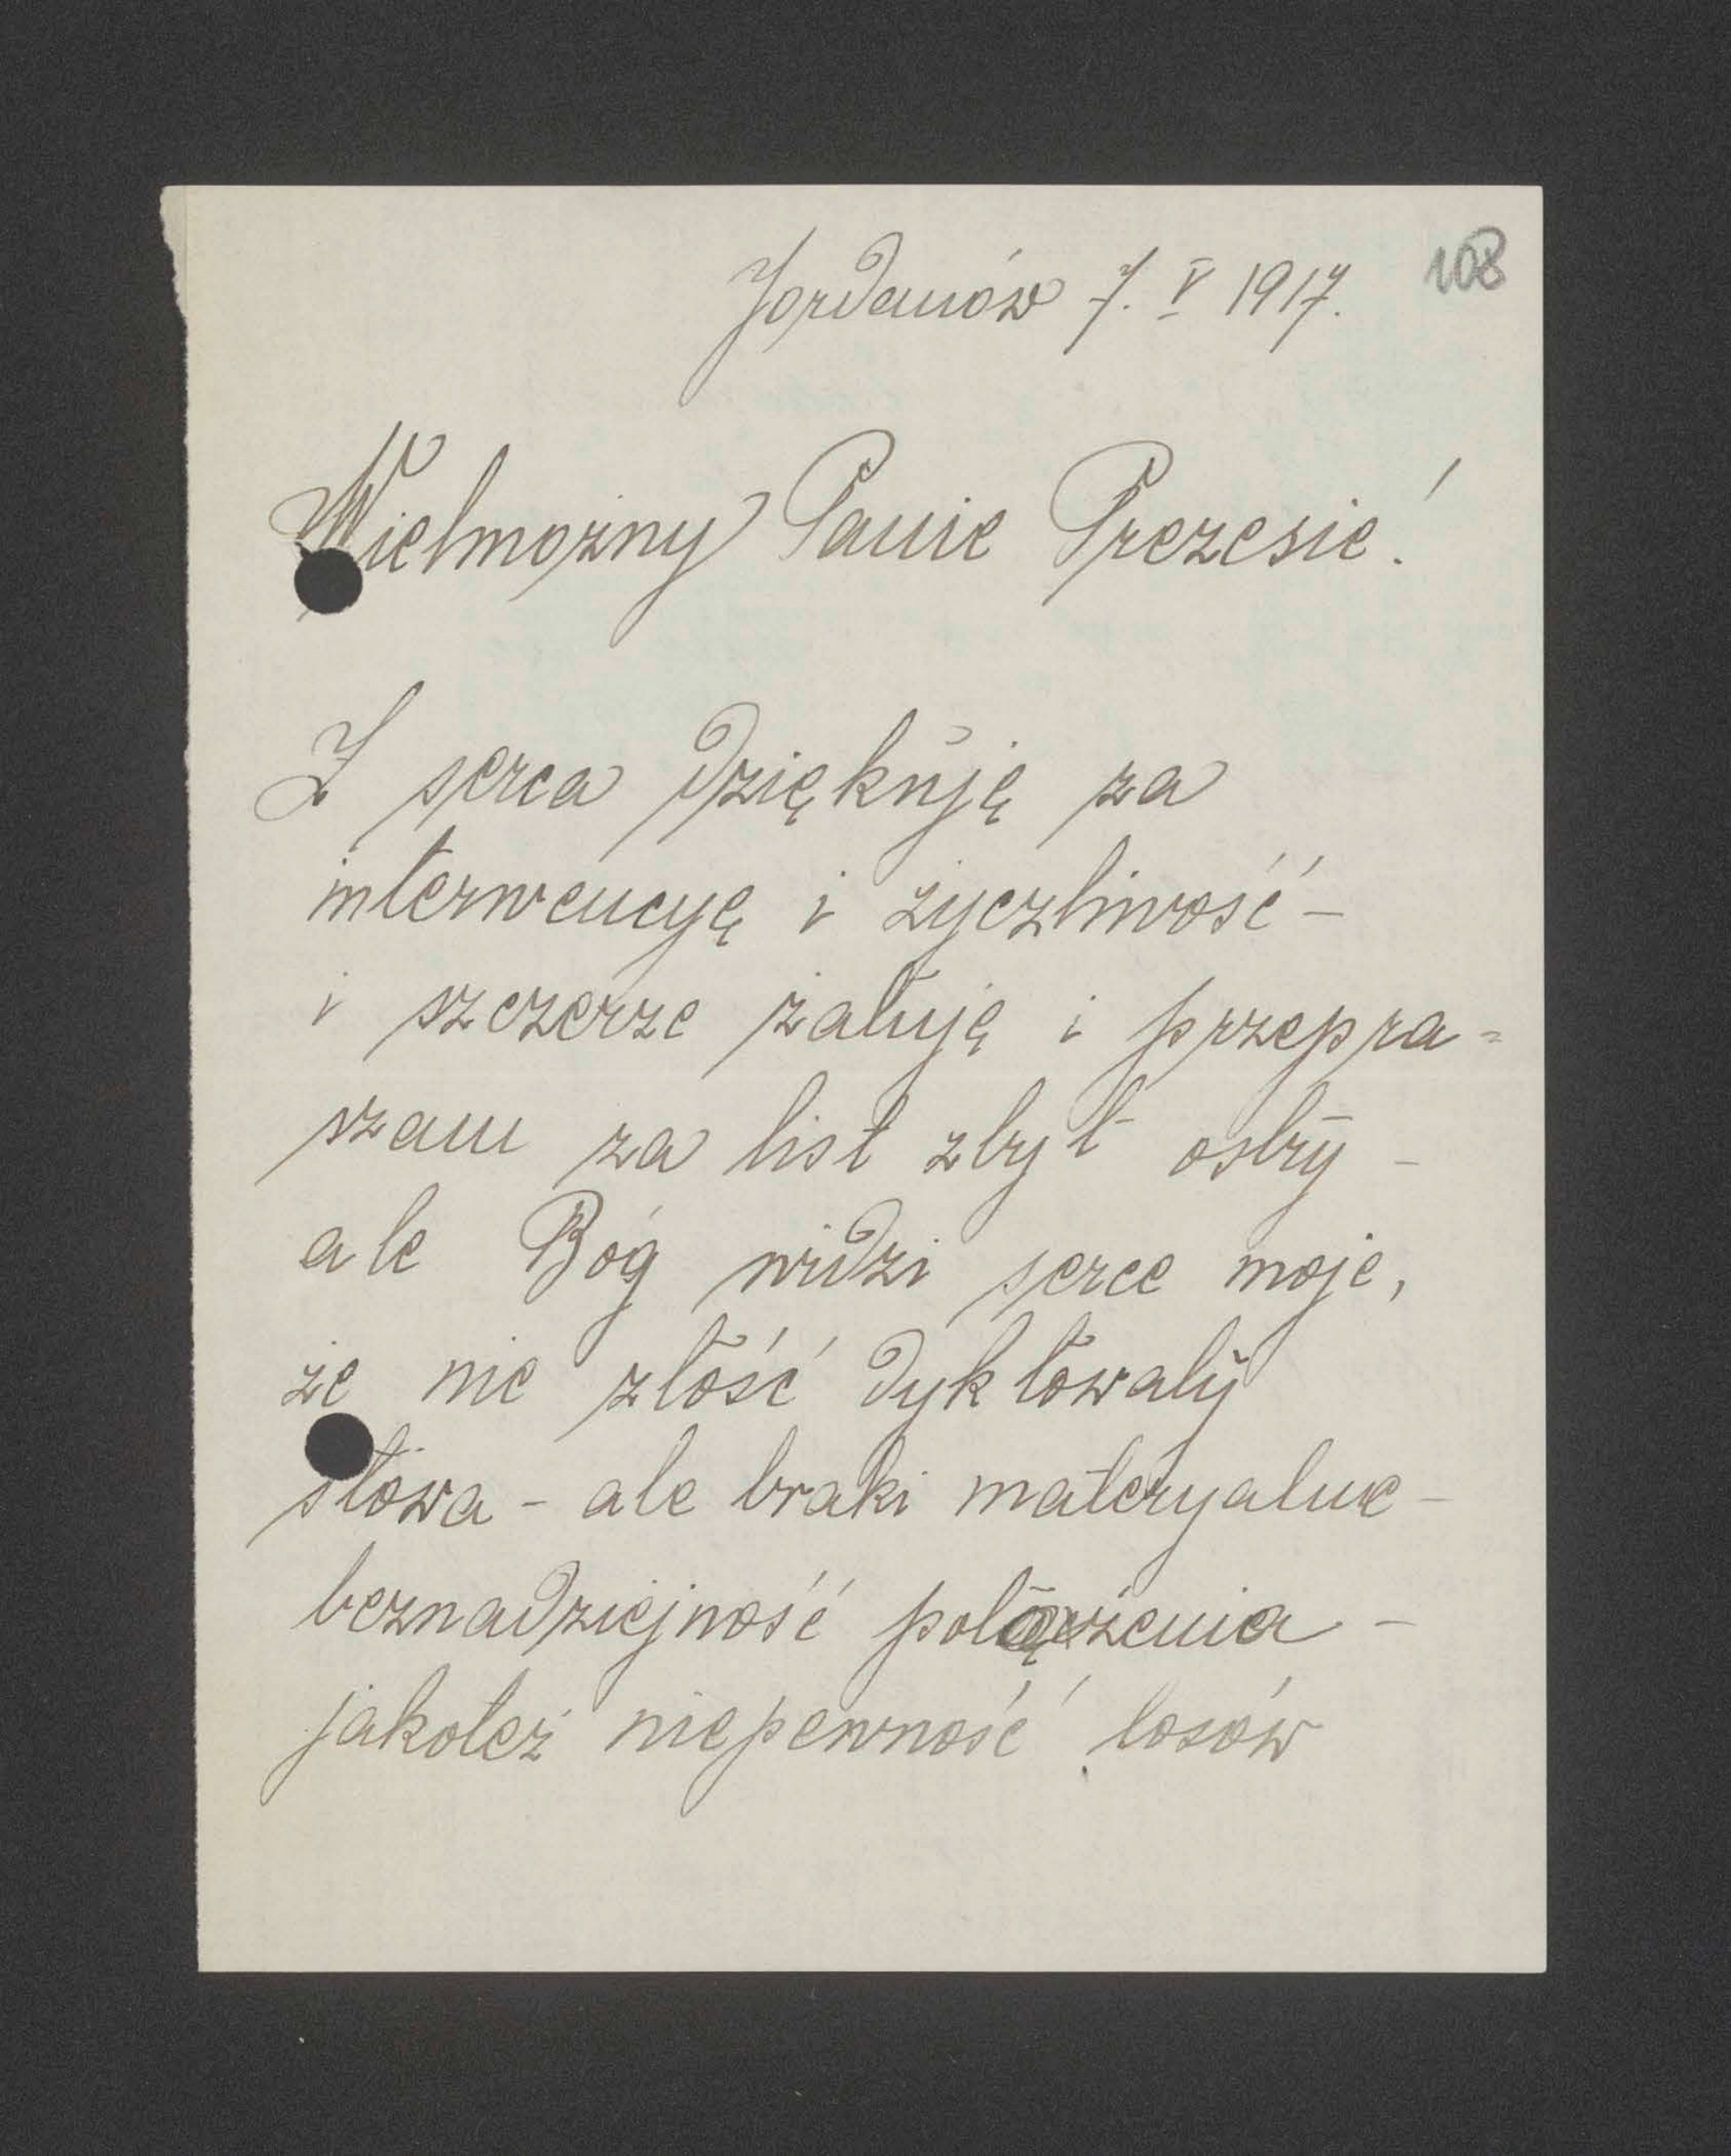 108
Jordanów 7. V 1917.
Wielmożny Panie Prezesie!
Z serca dziękuję za
interwencyę i życzliwość –
i szczerze żałuję i przepra=
szam za list zbyt ostry –
ale Bóg widzi serce moje,
że nie złość dyktowały
słowa – ale braki materyalne –
beznadziejność położenia –
jakoteż niepewność losów